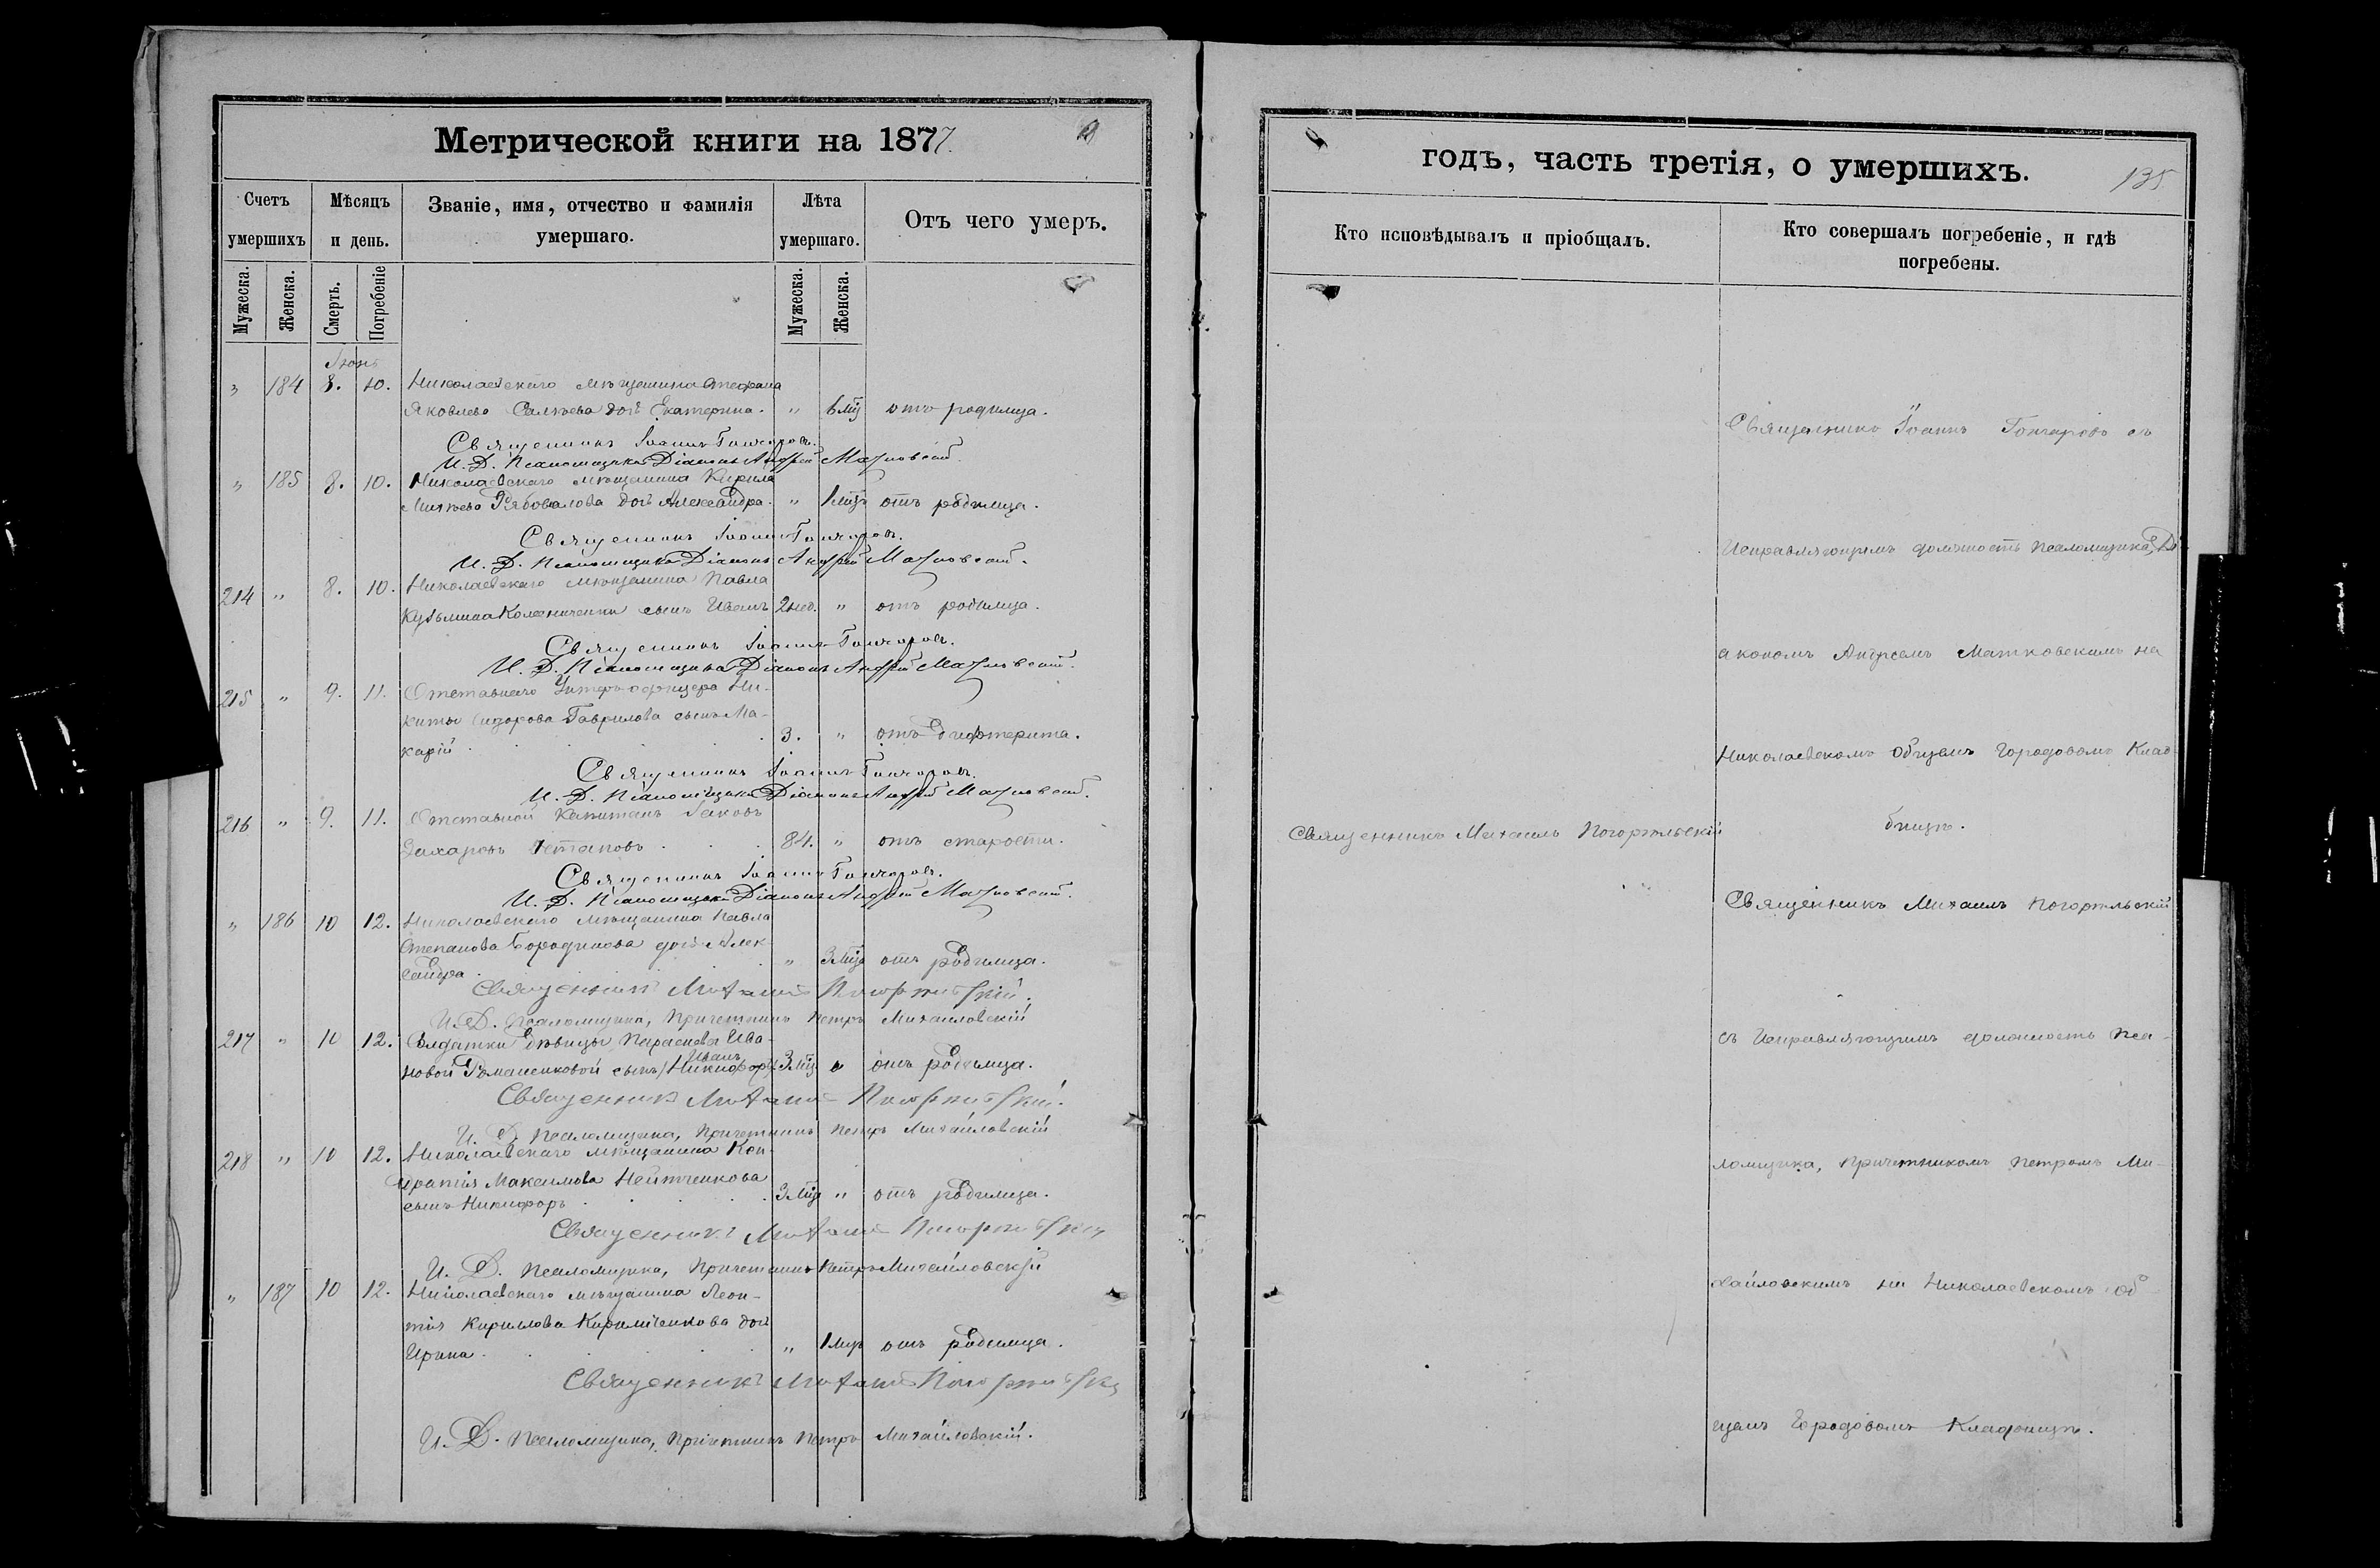 Метрической книги на 1877.
Счетъ умершихъ
Мѣсяцъ и день.
Званіе, имя, отчество и фамилія умершаго.
Лѣта умершаго.
Отъ чего умеръ.
Мужеска.
Женска.
Смерть.
Погребеніе
Мужеска.
Женска.
" 184 8. 10. Николаевскаго мѣщанина Стефана
Яковлева дочь Екатерина. " отъ родимца.
Священникъ Іоаннъ Гончаровъ.
И. Д. Псаломщика Діаконъ Андрей
" 185 8. 10. Николаевскаго мѣщанина Кирила
Рябовалова дочь Александра. " отъ родимца.
Священникъ Іоаннъ Гончаровъ.
И. Д. Псаломщика Діаконъ Андрей
214 " 8. 10. Николаевскаго мѣщанина Павла
Кузьмина сынъ Иванъ 2 нед. " отъ родимца.
Священникъ Іоаннъ Гончаровъ.
И. Д. Псаломщика Діаконъ Андрей
215 " 9. 11. Отставнаго Унтеръ-офицера Ни-
киты Сидорова Гаврилова сынъ Ма-
карій 3. " отъ дифтерита.
Священникъ Іоаннъ Гончаровъ.
И. Д. Псаломщика Діаконъ Андрей
216 " 9. 11. Отставной Капитанъ Яковъ
Захаровъ 84. " отъ старости.
Священникъ Іоаннъ Гончаровъ.
И. Д. Псаломщика Діаконъ Андрей
" 186 10 12. Николаевскаго мѣщанина Павла
Степанова Бородинова дочь Алек-
сандра. " 3 мѣц отъ родимца.
Священникъ Михаилъ
И. Д. Псаломщика, Причетникъ Петръ Михайловскій
217 " 10 12. Солдатки дѣвицы Парасковы Ива-
новой Романенковой сынъ Иванъ /Никифоръ/ 3 мѣц " отъ родимца.
Священникъ Михаилъ
И. Д. Псаломщика, Причетникъ Петръ Михайловскій
218 " 10 12. Николаевскаго мѣщанина Кон-
дратія Максимова
сынъ Никифоръ 3 мѣц " отъ родимца.
Священникъ Михаилъ
И. Д. Псаломщика, Причетникъ Петръ Михайловскій
" 187 10 12. Николаевскаго мѣщанина Леон-
тія Кириллова дочь
Ирина. " отъ родимца.
Священникъ Михаилъ
И. Д. Псаломщика, Причетникъ Петръ Михайловскій.
годъ, часть третія, о умершихъ.
135
Кто исповѣдывалъ и пріобщалъ.
Кто совершалъ погребеніе, и гдѣ погребены.
Священникъ Іоаннъ Гончаровъ съ
Исправляющимъ должность псаломщика, Ді
акономъ Андреемъ Матковскимъ на
Николаевскомъ общемъ Городовомъ Клад-
Священникъ Михаилъ Погорѣльскій
бищѣ.
Священникъ Михаилъ Погорѣльскій
съ Исправляющимъ должность Пса-
ломщика, Причетникомъ Петромъ Ми-
хайловскимъ на Николаевскомъ об-
щемъ Городовомъ Кладбищѣ.